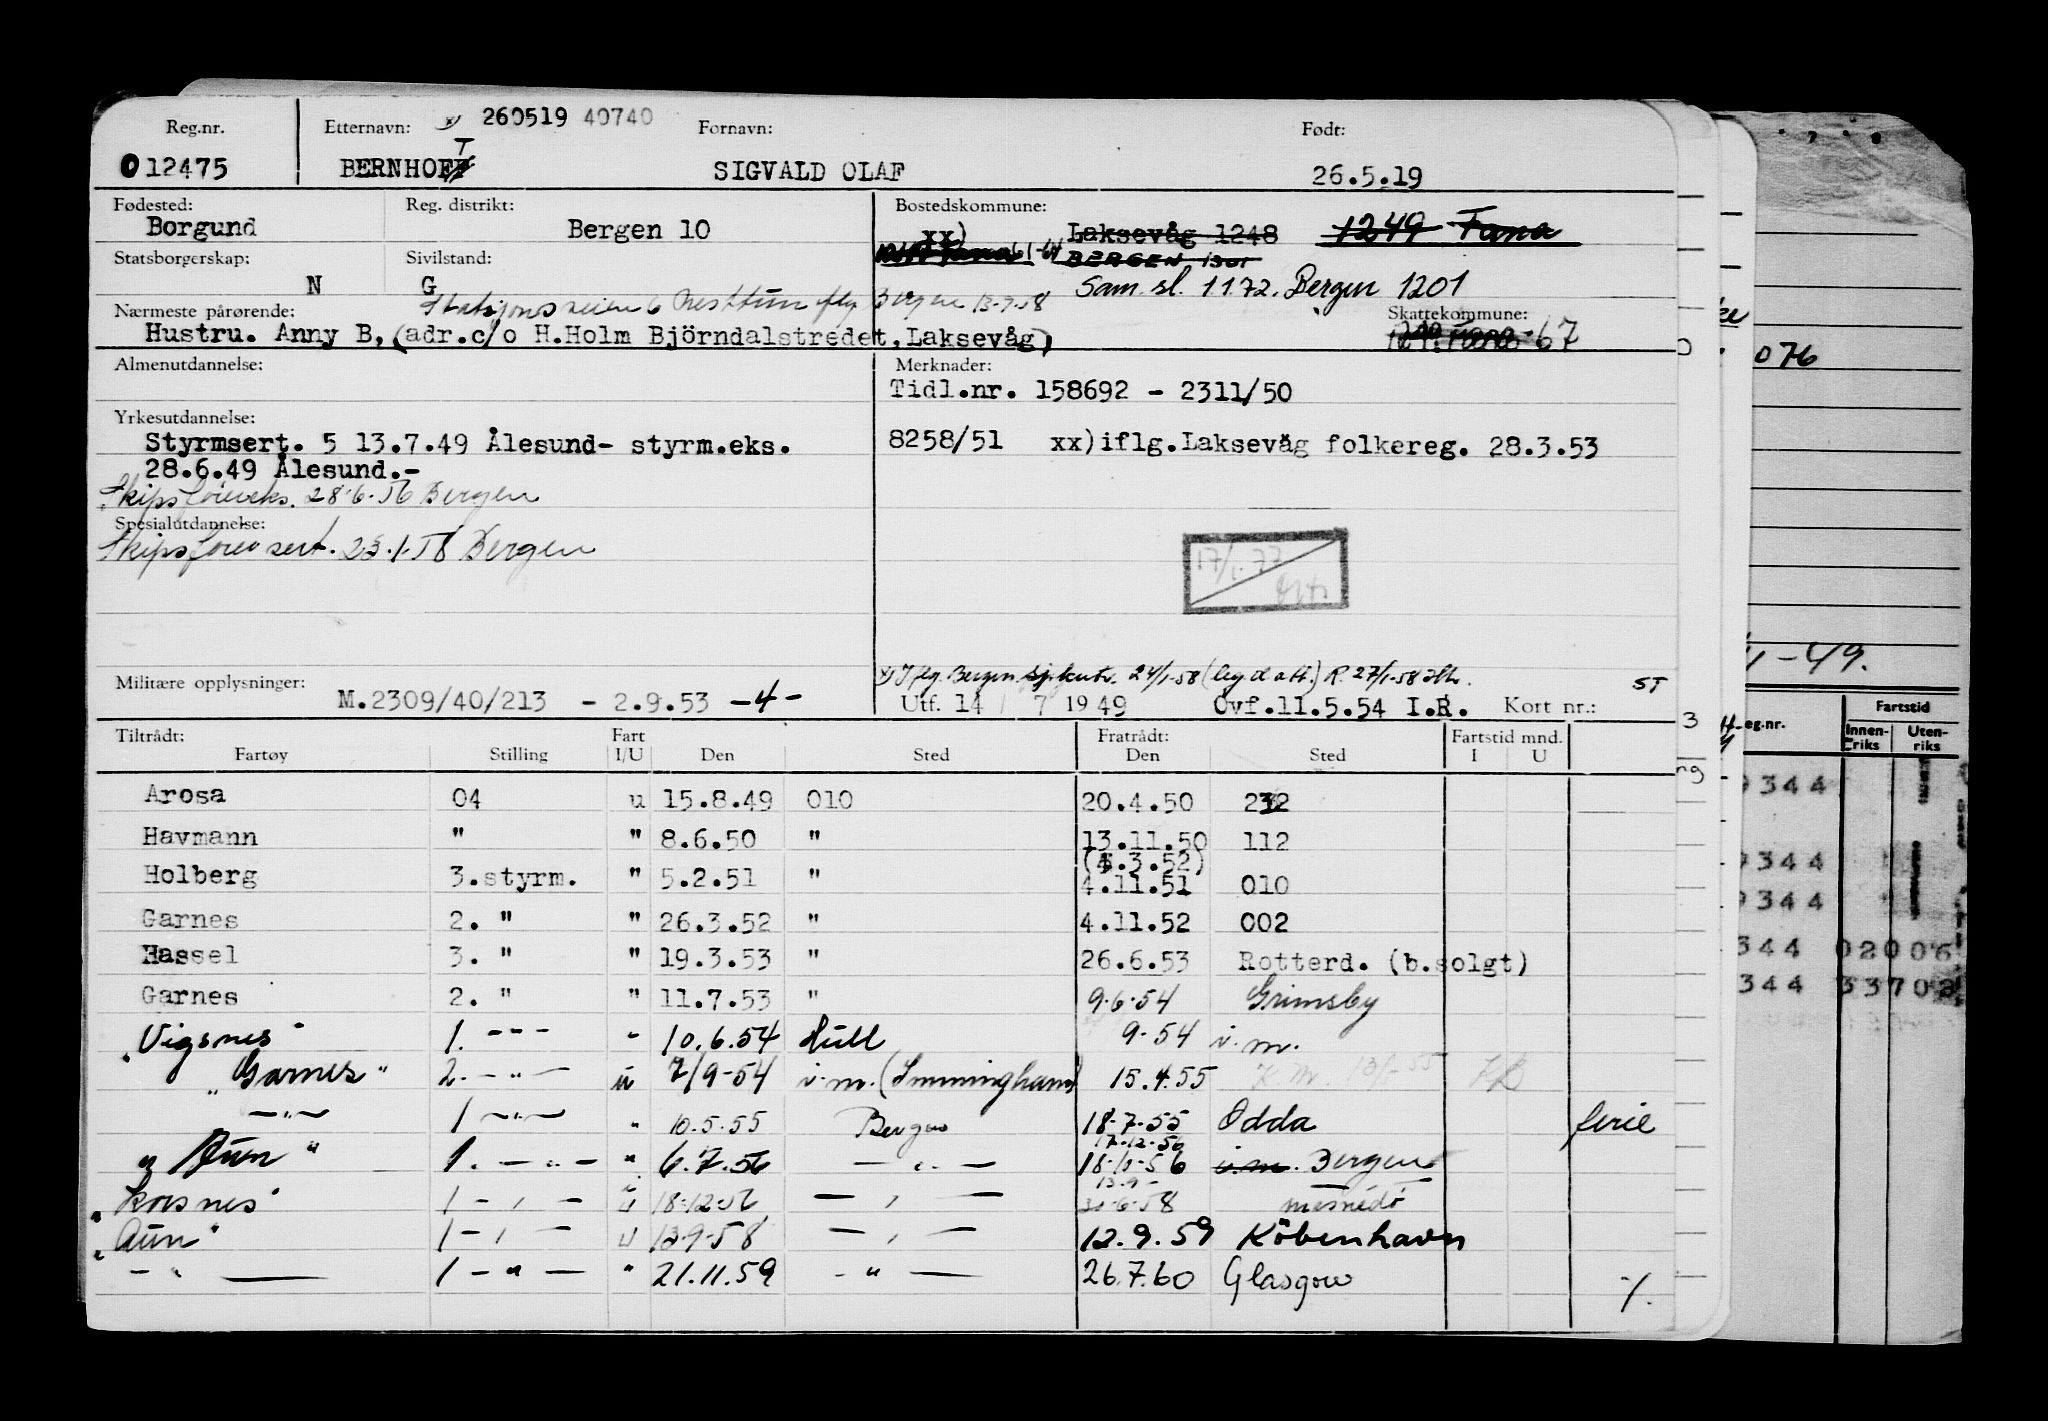 Reg.nr. Etternavn: x) 260519 40740 Fornavn: Født:
012475 BERNHOFF T SIGVALD OLAF 26.5.19
Fødested: Reg. distrikt: Bostedskommune:
Borgund Bergen 10 xx) Laksevåg 1248 1249 Fana
BERGEN 1301
Statsborgerskap: Sivilstand:
N G Sam.sl. 1172. Bergen 1201
Stasjonsveien 6 Nesttun iflg Bergen 13-9-58
Nærmeste pårørende: Skattekommune:
Hustru. Anny B, (adr.c/o H.Holm Björndalstredet, Laksevåg) -67
Almenutdannelse: Merknader:
Tidl.nr. 158692 - 2311/50
Yrkesutdannelse:
Styrmsert. 5 13.7.49 Ålesund- styrm.eks. 8258/51 xx)iflg.Laksevåg folkereg. 28.3.53
28.6.49 Ålesund.-
Skipsføreeks. 28-6-56 Bergen
Spesialutdannelse:
Skipsførersert. 23.1.58 Bergen
17/1.77
x) Iflg. Bergen sjøkontr. 24/1-58 (leg d att.) R. 27/1-58
Militære opplysninger: ST
M.2309/40/213 - 2.9.53 -4- Utf. 14 / 7 1949 Ovf.11.5.54 I.R. Kort nr.:
Tiltrådt: Fart Fratrådt: Fartstid mnd.
Fartøy Stilling I/U Den Sted Den Sted I U
Arosa 04 u 15.8.49 010 20.4.50 232
Havmann " " 8.6.50 " 13.11.50 112
(4.3.52)
Holberg 3.styrm. " 5.2.51 " 4.11.51 010
Garnes 2. " " 26.3.52 " 4.11.52 002
Hassel 3. " " 19.3.53 " 26.6.53 Rotterd. (b.solgt)
Garnes 2. " " 11.7.53 " 9.6.54 Grimsby
"Vigsnes" 1. -"- " 10.6.54 Hull 9-54 v.m.
"Garnes" 2. -"- u 7/9-54 v.m. (Immingham) 15.4.55
-"- 1 -"- " 10.5.55 Bergen 18-7-55 Odda ferie
17-12-56
"Aun" 1. -"- " 6.7.56 -"- 18-10-56 v.m. Bergen
13.9-
"Korsnes" 1 -"- u 18-12-56 -"- 30-6-58
"Aun" 1 -"- u 13-9-58 -"- 12.9.59 Köbenhavn
-"- 1 -"- " 21.11.59 -"- 26.7.60 Glasgow
./.
076
-49.
eg.nr. Fartstid
Innenriks Utenriks
9344
9344
9344
344 020 006
344 337 02